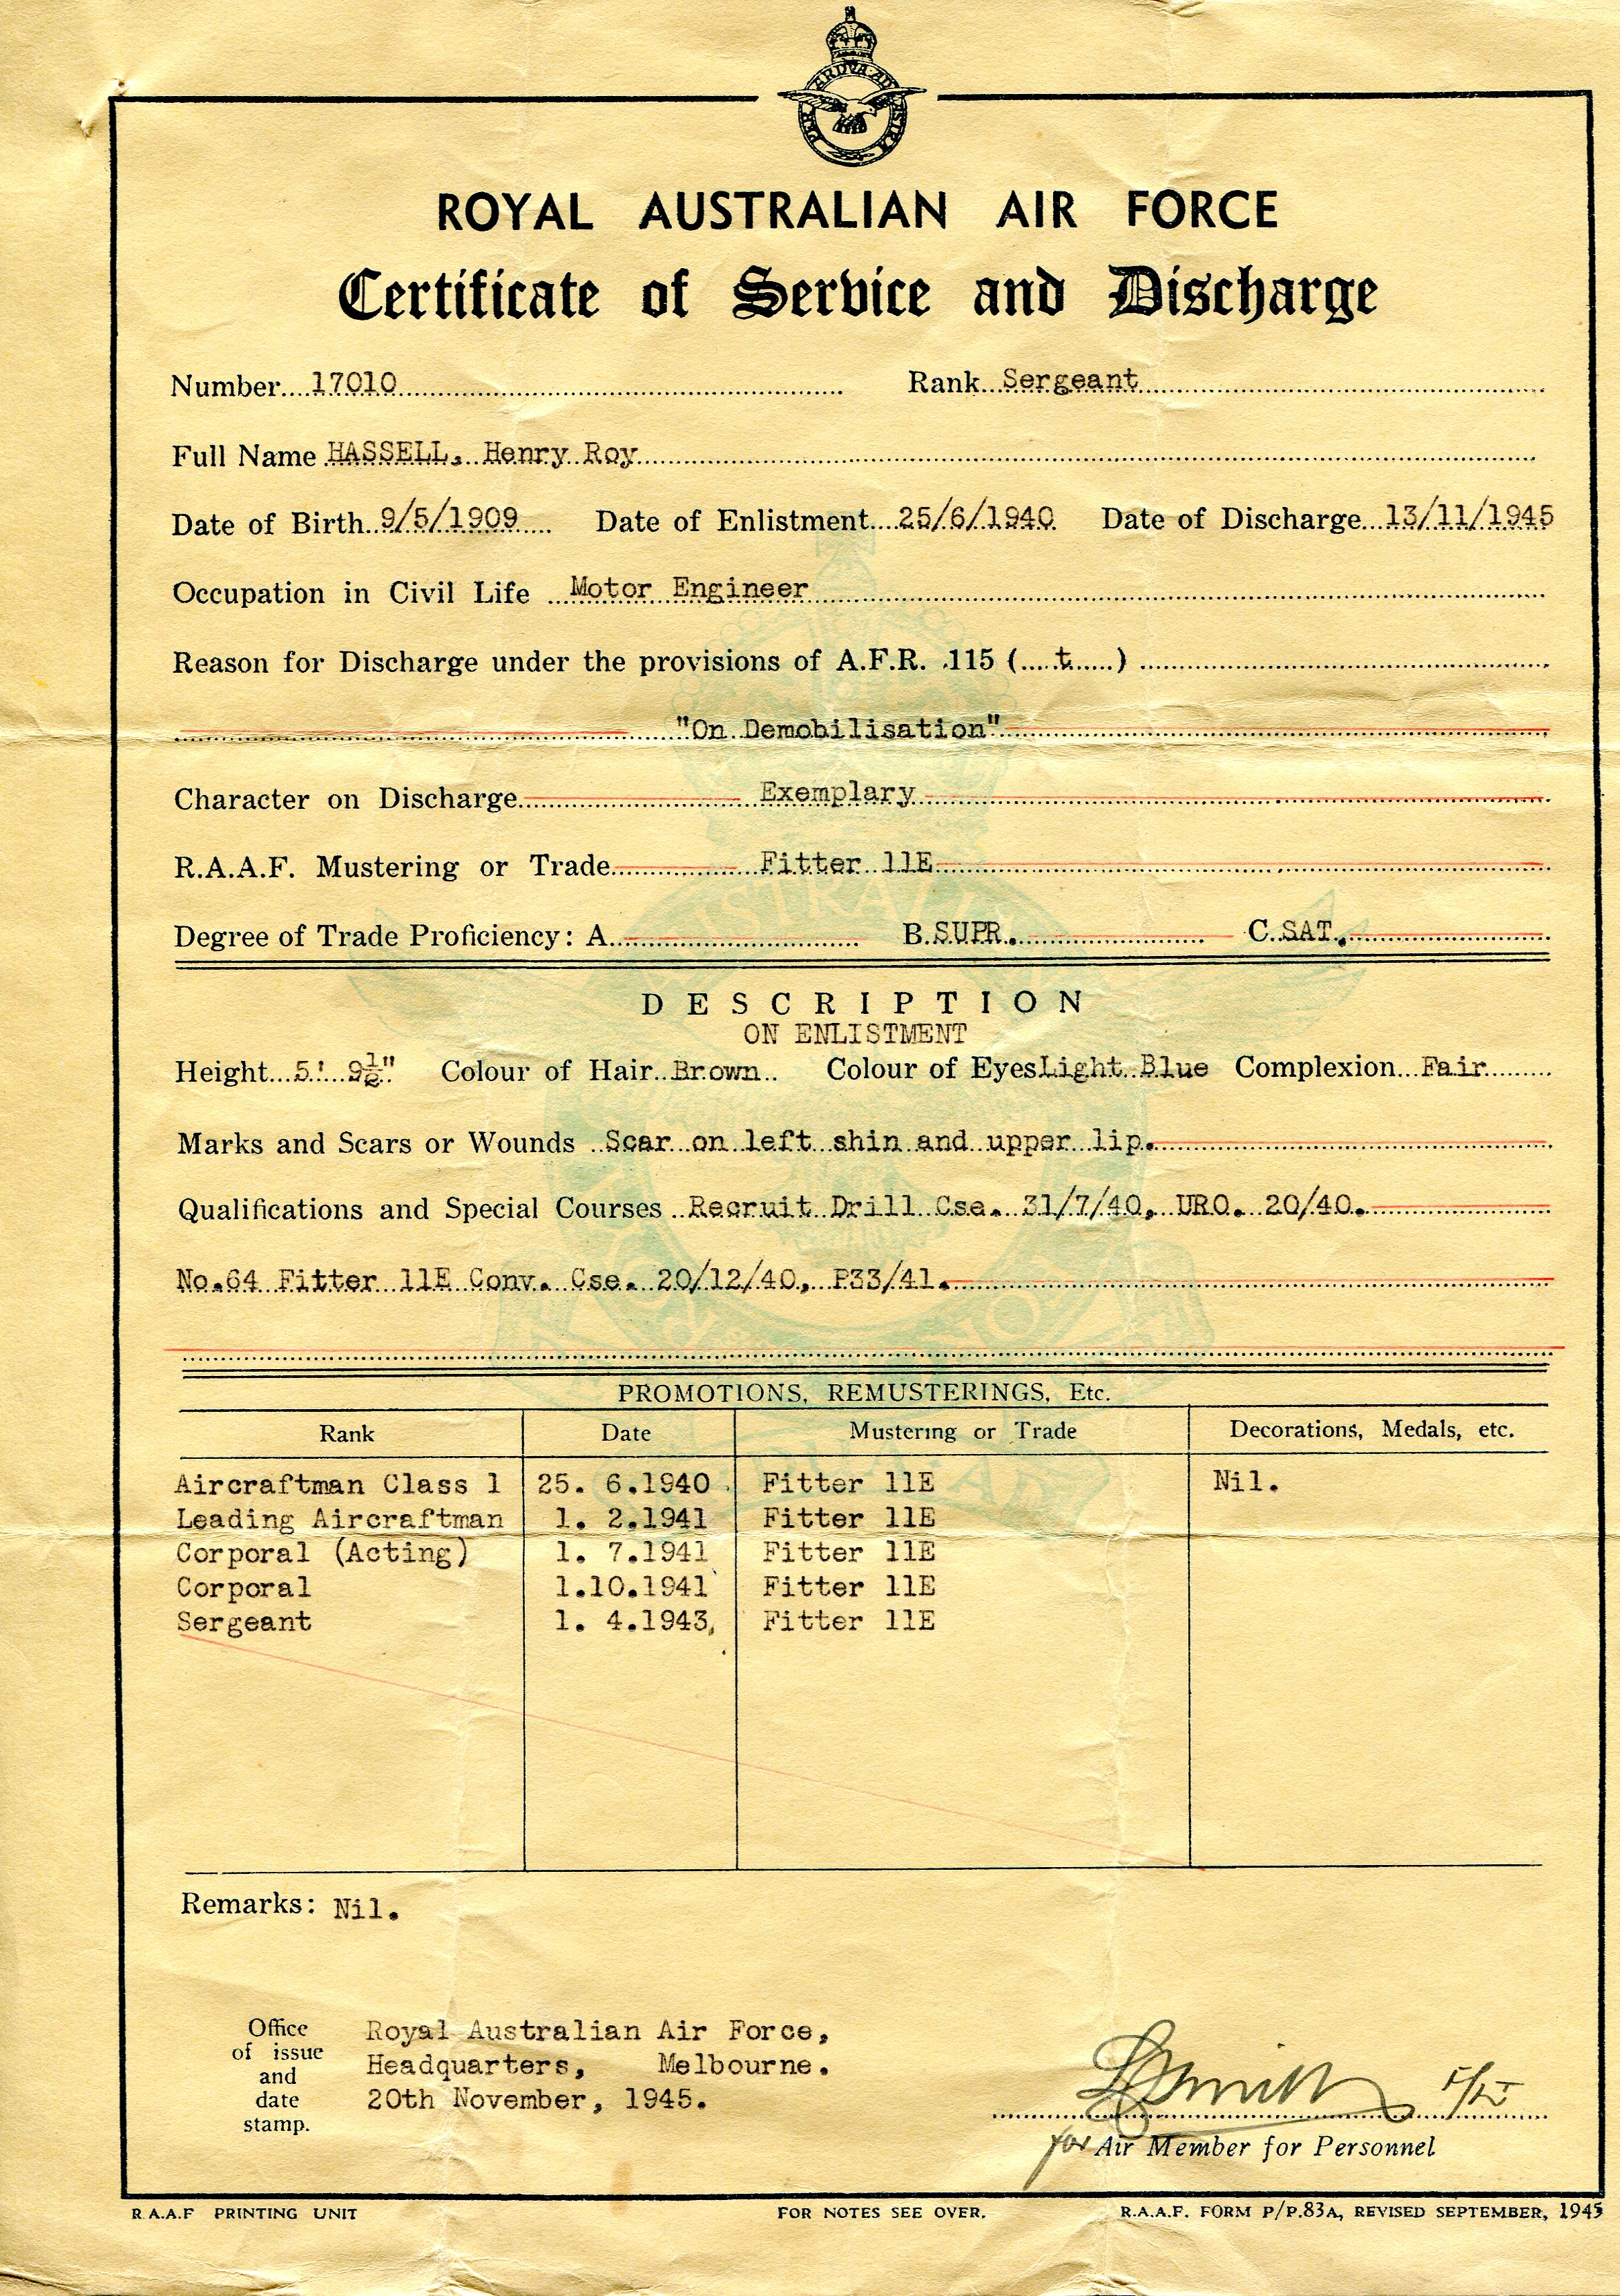 PER ARDUA AD ASTRA
ROYAL AUSTRALIAN AIR FORCE
Certificate of Service and Discharge
Number 17010 Rank Sergeant
Full Name HASSELL, Henry Roy
Date of Birth 9/5/1909 Date of Enlistment 25/6/1940 Date of Discharge 13/11/1945
Occupation in Civil Life Motor Engineer
Reason for Discharge under the provisions of A.F.R. 115 (t)
"On Demobilisation"
Character on Discharge Exemplary
R.A.A.F. Mustering or Trade Fitter 11E
Degree of Trade Proficiency: A. B. SUPR. C. SAT.
DESCRIPTION
ON ENLISTMENT
Height 5' 9½" Colour of Hair Brown Colour of Eyes Light Blue Complexion Fair
Marks and Scars or Wounds Scar on left shin and upper lip.
Qualifications and Special Courses Recruit Drill Cse. 31/7/40, URO. 20/40.
No.64 Fitter 11E Conv. Cse. 20/12/40, P33/41.
PROMOTIONS, REMUSTERINGS, Etc.
Rank Date Mustering or Trade Decorations, Medals, etc.
Aircraftman Class 1 25. 6.1940 Fitter 11E Nil.
Leading Aircraftman 1. 2.1941 Fitter 11E
Corporal (Acting) 1. 7.1941 Fitter 11E
Corporal 1.10.1941 Fitter 11E
Sergeant 1. 4.1943, Fitter 11E
Remarks: Nil.
Office of issue and date stamp.
Royal Australian Air Force,
Headquarters, Melbourne.
20th November, 1945.
for Air Member for Personnel
R.A.A.F PRINTING UNIT FOR NOTES SEE OVER. R.A.A.F. FORM P/P.83A, REVISED SEPTEMBER, 1945